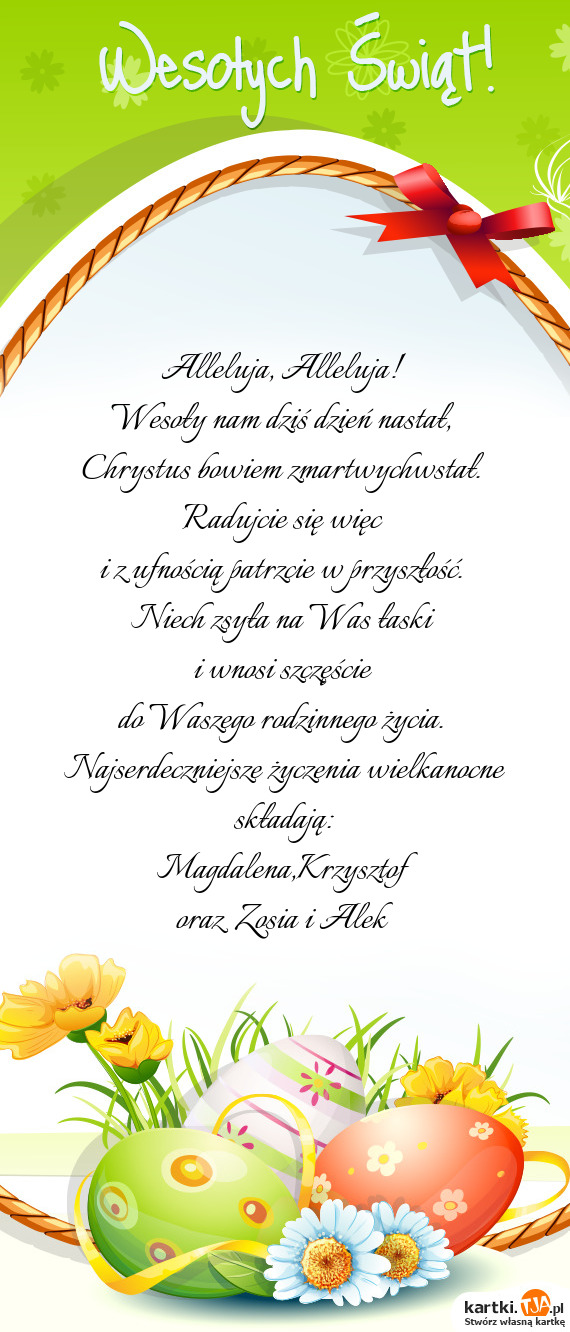 Wesołych Świąt!
Alleluja, Alleluja!
Wesoły nam dziś dzień nastał,
Chrystus bowiem zmartwychwstał.
Radujcie się więc
i z ufnością patrzcie w przyszłość.
Niech zsyła na Was łaski
i wnosi szczęście
do Waszego rodzinnego życia.
Najserdeczniejsze życzenia wielkanocne
składają:
Magdalena,Krzysztof
oraz Zosia i Alek
kartki.TJA.pl
Stwórz własną kartkę